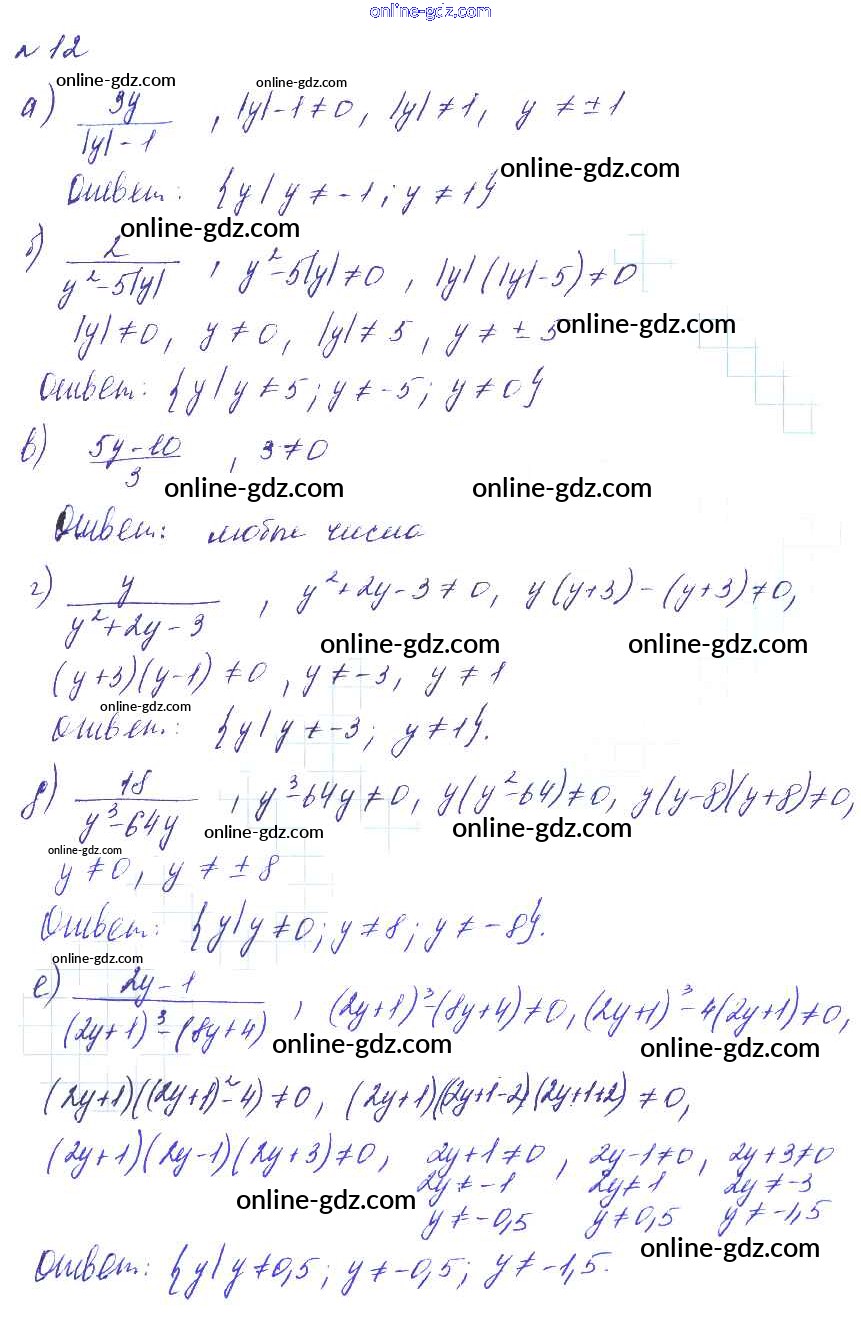 online-gdz.com
№ 12
online-gdz.com online-gdz.com
а) 9y / |y| - 1 , |y| - 1 ≠ 0, |y| ≠ 1, y ≠ ± 1
online-gdz.com
Ответ: {y | y ≠ -1; y ≠ 1}
online-gdz.com
б) 2 / y² - 5|y| , y² - 5|y| ≠ 0, |y|(|y| - 5) ≠ 0
|y| ≠ 0, y ≠ 0, |y| ≠ 5, y ≠ ± 5 online-gdz.com
Ответ: {y | y ≠ 5; y ≠ -5; y ≠ 0}
в) 5y - 10 / 3 , 3 ≠ 0
online-gdz.com online-gdz.com
Ответ: любые числа
г) y / y² + 2y - 3 , y² + 2y - 3 ≠ 0, y(y+3) - (y+3) ≠ 0,
online-gdz.com online-gdz.com
(y+3)(y-1) ≠ 0, y ≠ -3, y ≠ 1
online-gdz.com
Ответ: {y | y ≠ -3; y ≠ 1}.
д) 18 / y³ - 64y , y³ - 64y ≠ 0, y(y² - 64) ≠ 0, y(y-8)(y+8) ≠ 0,
online-gdz.com online-gdz.com
online-gdz.com
y ≠ 0, y ≠ ± 8
Ответ: {y | y ≠ 0; y ≠ 8; y ≠ -8}.
online-gdz.com
е) 2y - 1 / (2y+1)³ - (8y+4) , (2y+1)³ - (8y+4) ≠ 0, (2y+1)³ - 4(2y+1) ≠ 0,
online-gdz.com online-gdz.com
(2y+1)((2y+1)² - 4) ≠ 0, (2y+1)(2y+1-2)(2y+1+2) ≠ 0,
(2y+1)(2y-1)(2y+3) ≠ 0, 2y+1 ≠ 0, 2y-1 ≠ 0, 2y+3 ≠ 0
2y ≠ -1 2y ≠ 1 2y ≠ -3
online-gdz.com
y ≠ -0,5 y ≠ 0,5 y ≠ -1,5
online-gdz.com
Ответ: {y | y ≠ 0,5; y ≠ -0,5; y ≠ -1,5.